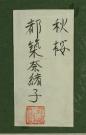 秋桜
都築奈緒子